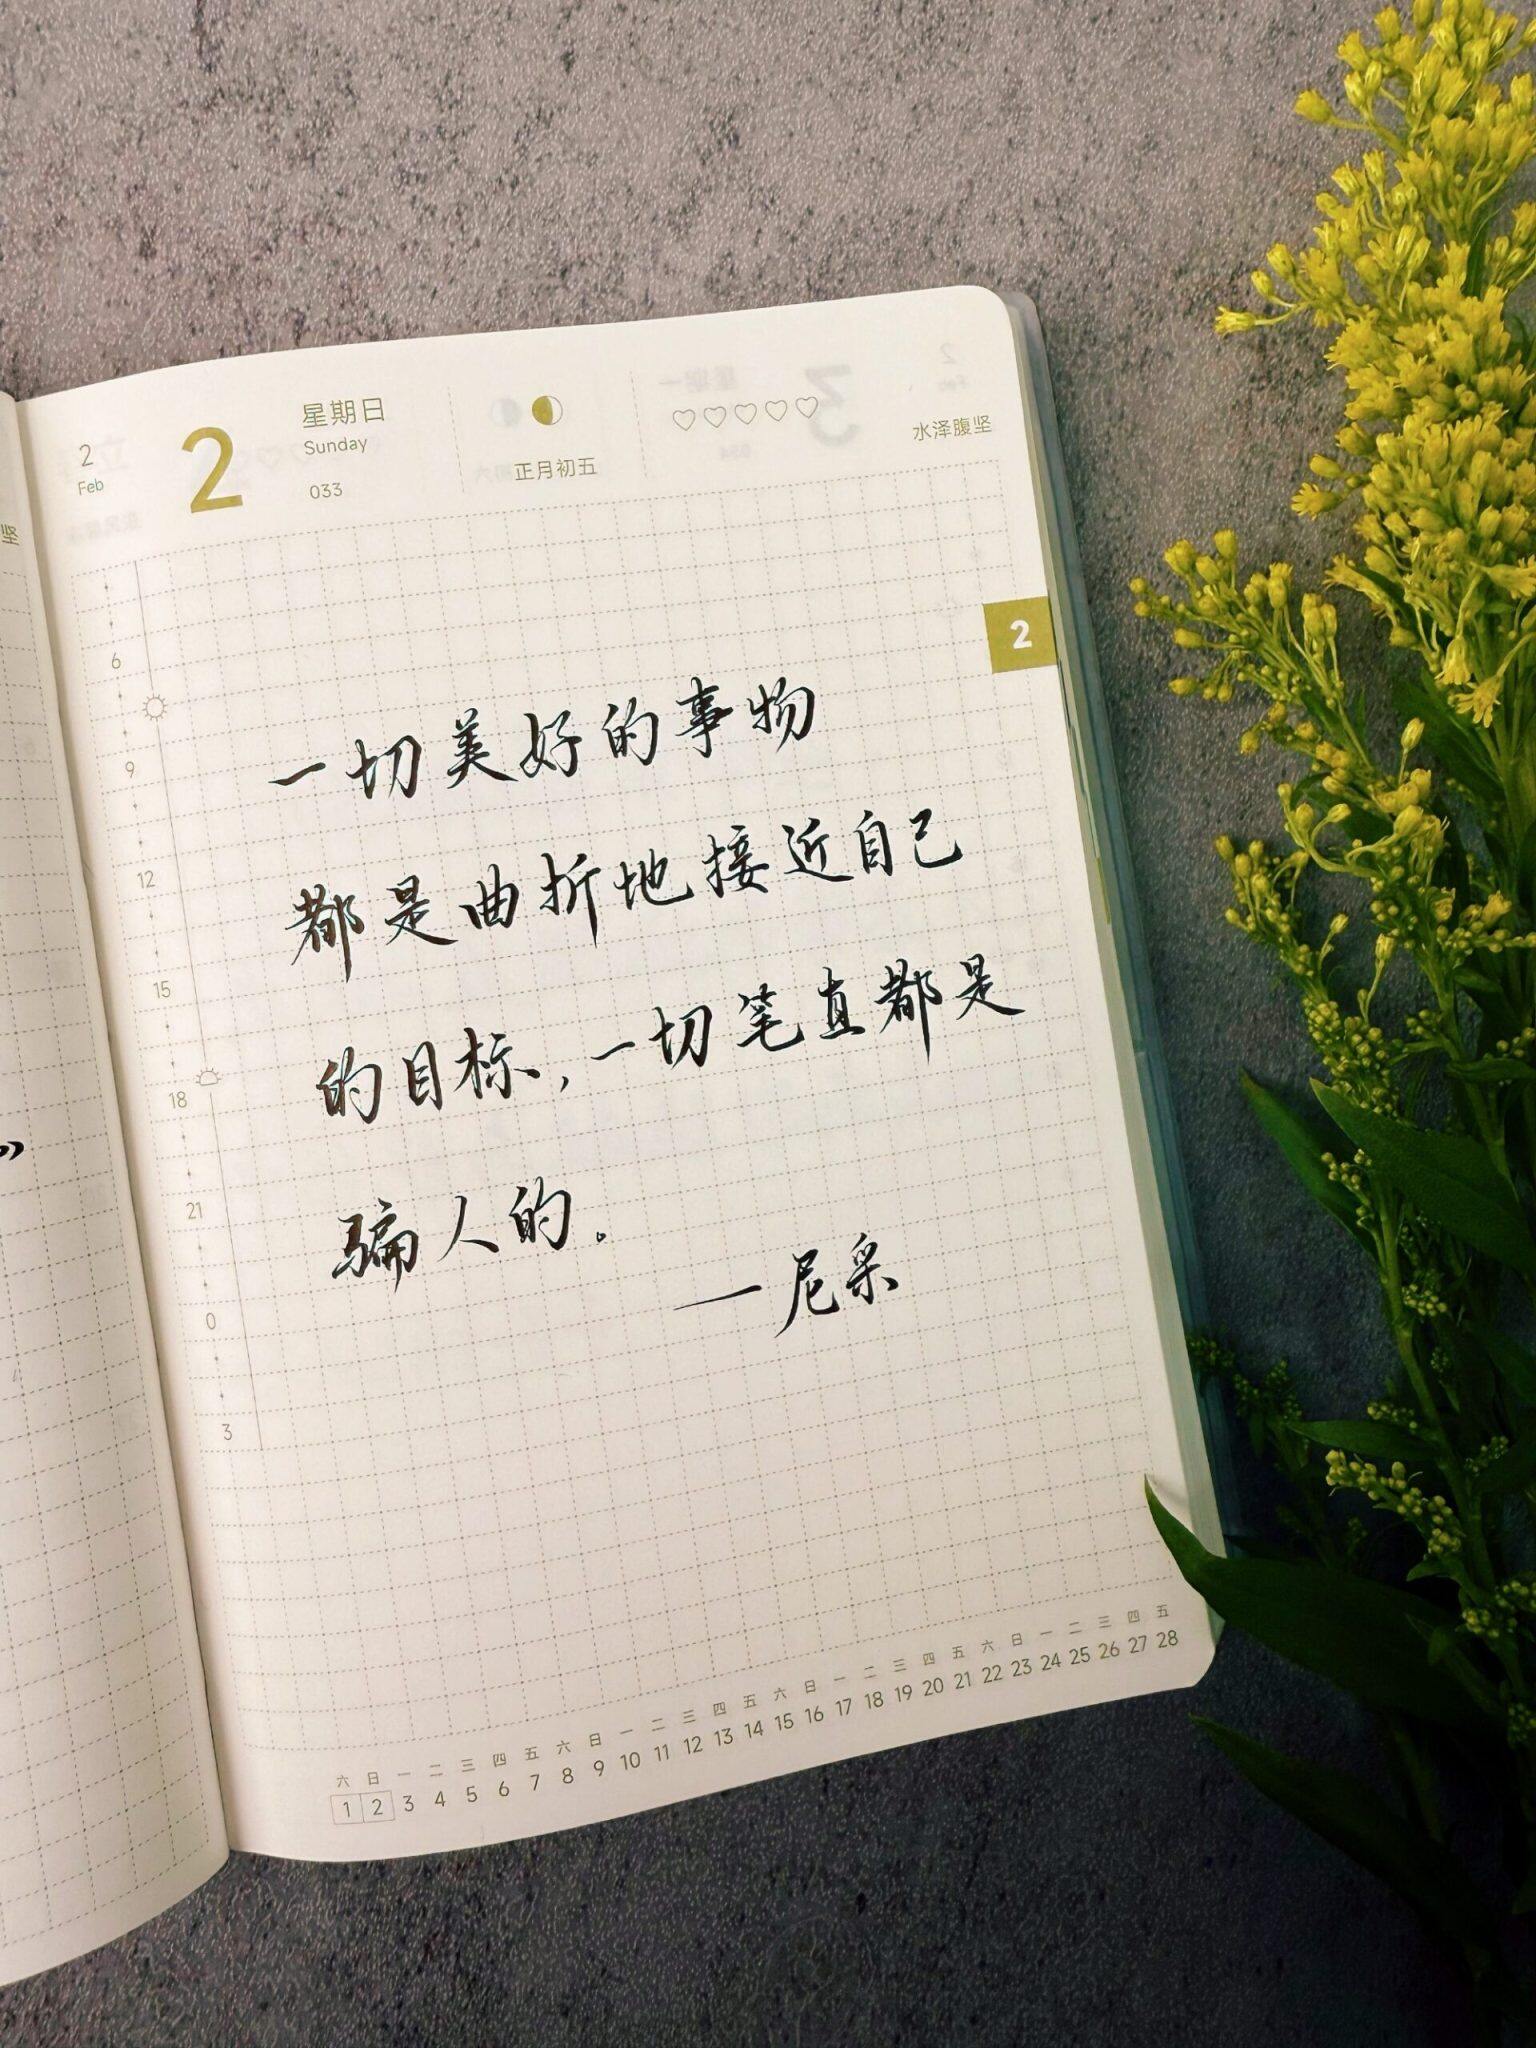 2
Feb
2
星期日
Sunday
033
正月初五
水泽腹坚
坚
2
6
9
12
15
18
21
0
3
一切美好的事物
都是曲折地接近自己
的目标，一切笔直都是
骗人的。
——尼采
”
六 日 一 二 三 四 五 六 日 一 二 三 四 五 六 日 一 二 三 四 五 六 日 一 二 三 四 五
1 2 3 4 5 6 7 8 9 10 11 12 13 14 15 16 17 18 19 20 21 22 23 24 25 26 27 28